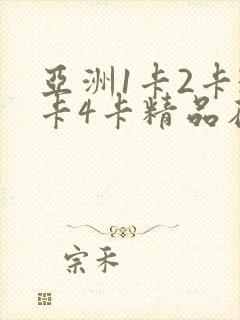 亞洲1卡2卡
卡4卡精品
宗禾